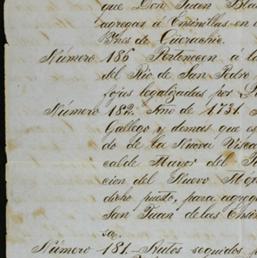 que Don Juan Bla
agregas á Encinillas en
Ines de Guerachic
Número 186 Pertenecen á la
del Rio de San Pedro
fojas legalizadas por D
Número 182. Ano de 1731.
Gallego y demas que es
do de la Nueva Visca
calde Mayor del P
cion del Nuevo Méj
dicho puesto, para agrega
San Juan de las Ensin
sa.
Número 181 Autos seguidos p